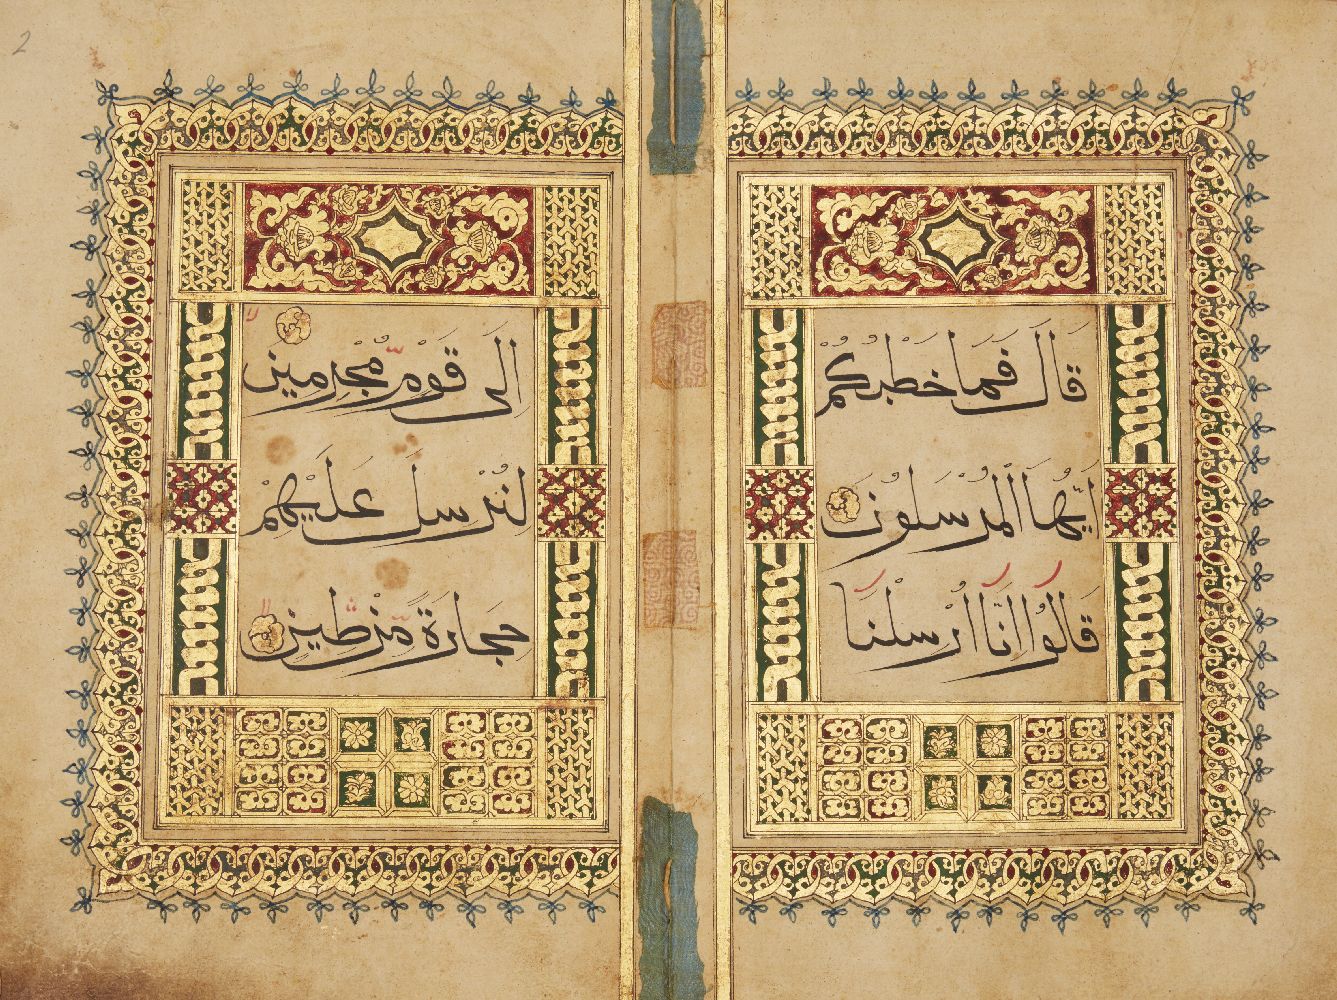 قَالَ فَمَا خَطْبُكُمْ
اَيُّهَا الْمُرْسَلُونَ
قَالُوا اِنَّا اُرْسِلْنَا
اِلَى قَوْمٍ مُجْرِمِينَ
لِنُرْسِلَ عَلَيْهِمْ
حِجَارَةً مِنْ طِينٍ
2